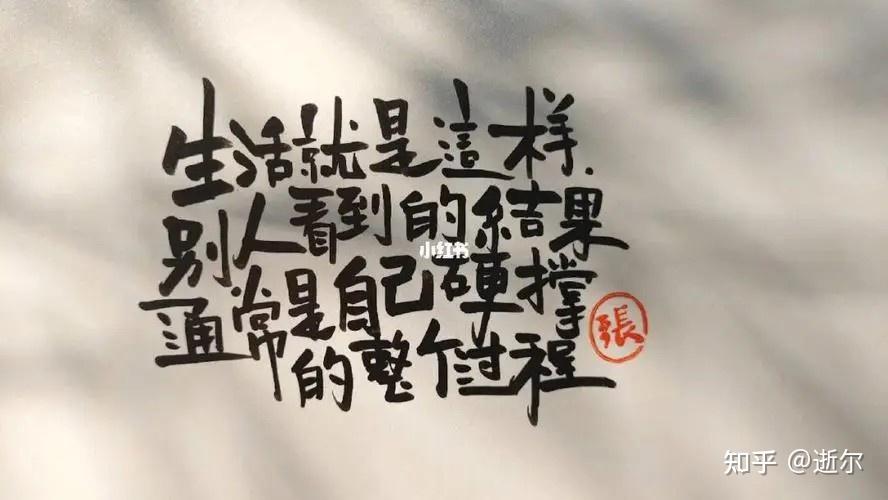 生活就是這样.
别人看到的結果
小红书
通常是自己硬撑
張
的整个过程
知乎 @逝尔